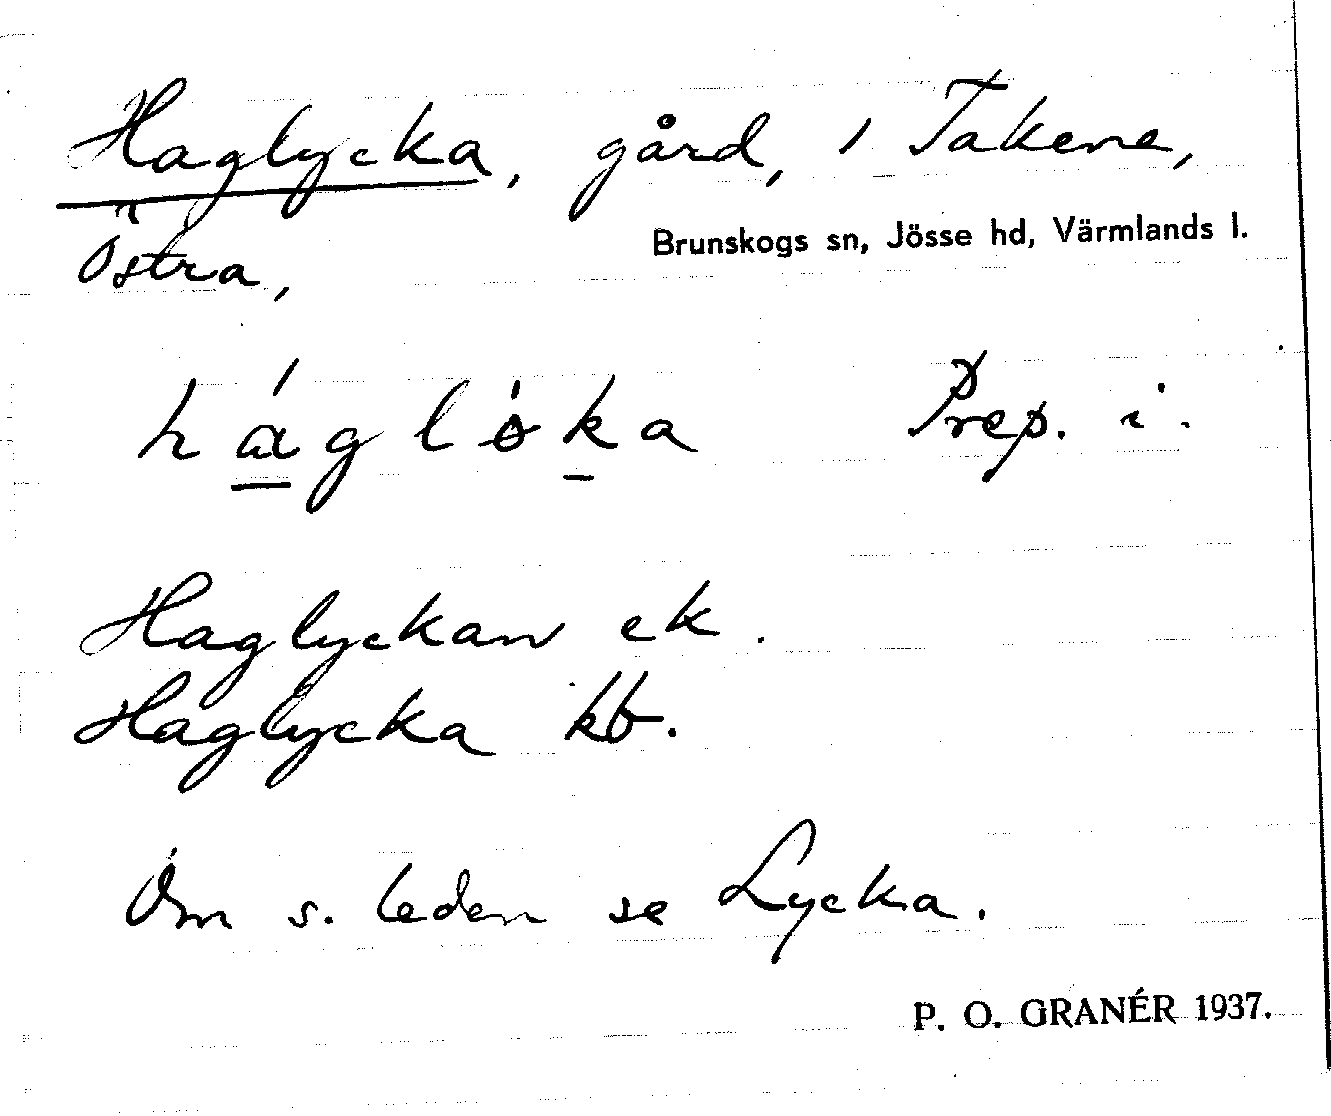 Haglycka, gård, i Takene,
Östra,
Brunskogs sn, Jösse hd, Värmlands l.
háglö́ka Prep. i.
Haglyckan ek.
Haglycka kb.
Om s. leden se Lycka.
P. O. GRANÉR 1937.